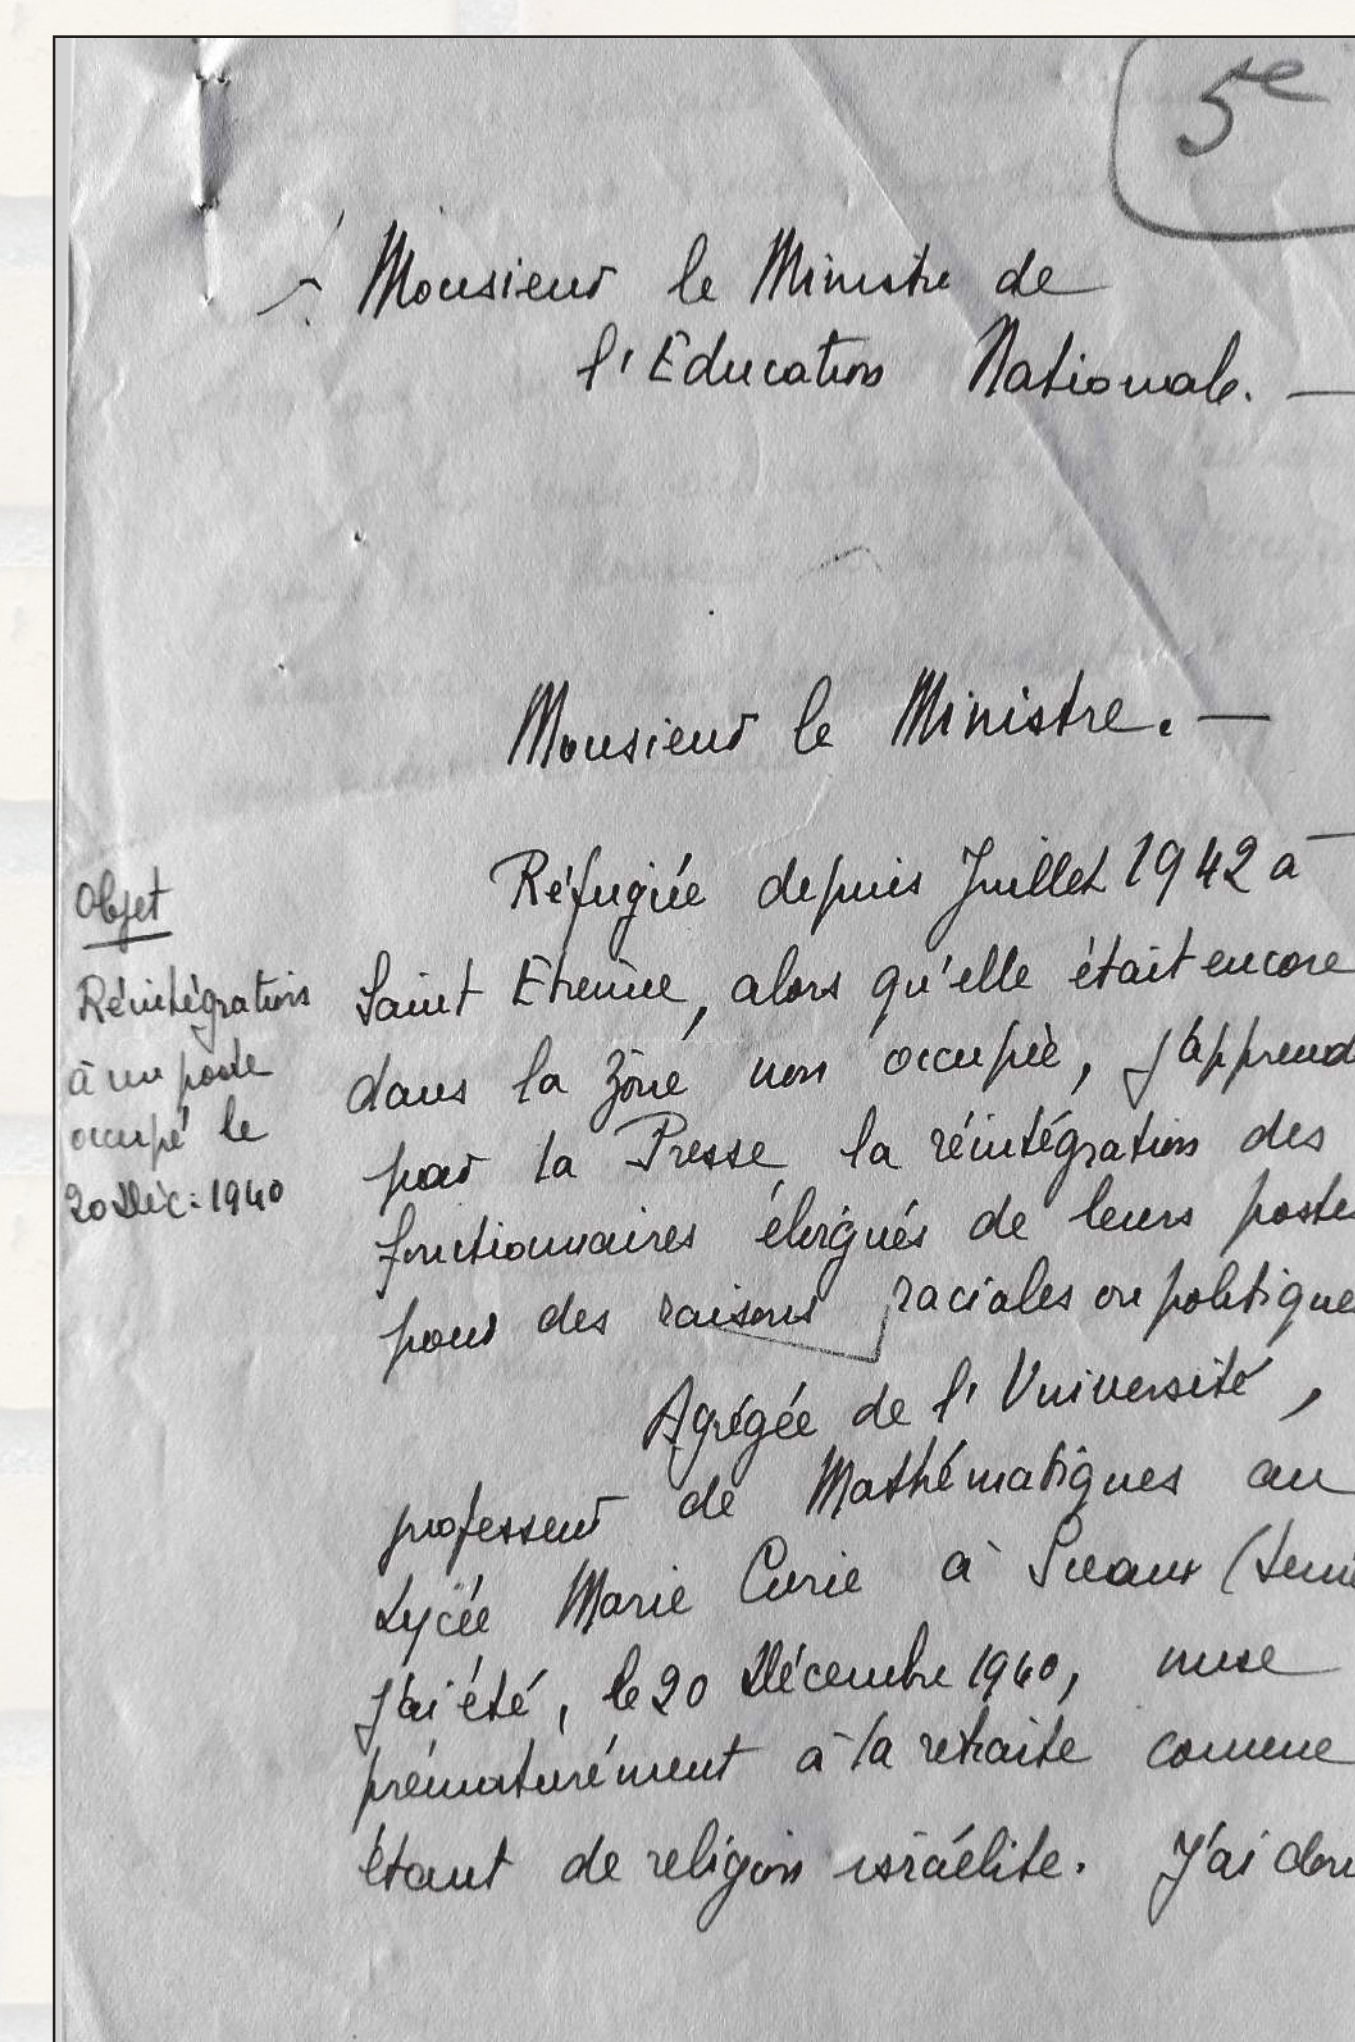 5e
Monsieur le Ministre de
l'Education Nationale. —
Monsieur le Ministre. —
Objet
Réintégration
à un poste
occupé le
20 Déc: 1940
Réfugiée depuis Juillet 1942 à
Saint Etienne, alors qu'elle était encore
dans la zône non occupée, j'apprend
par la Presse la réintégration des
fonctionnaires éloignés de leurs poste
pour des raisons raciales ou politique
Agrégée de l'Université,
professeur de Mathématiques au
Lycée Marie Curie à Sceaux (Seine
j'ai été, le 20 Décembre 1940, mise
prématurément à la retraite comme
étant de religion israélite. J'ai don